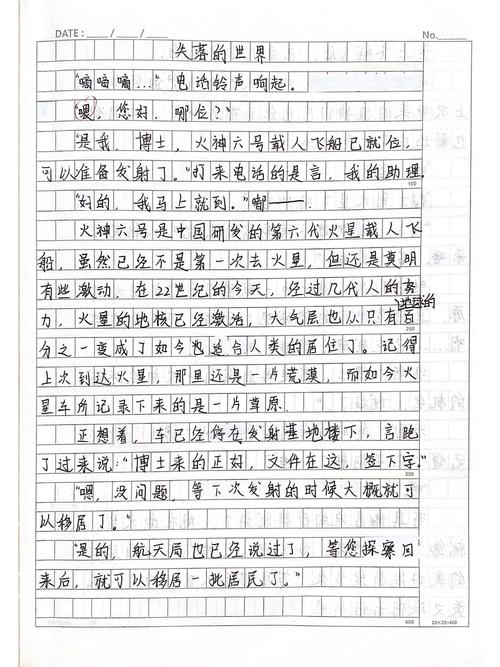 DATE: ___/___/___ No.______
失落的世界
“嘀嘀嘀…”电话铃声响起。
“喂，您好，哪位？”
“是我，博士，火神六号载人飞船已就位，
可以准备发射了。”打来电话的是言，我的助理。
100
“好的，我马上就到。”嘟——
火神六号是中国研发的第六代火星载人飞
船，虽然已经不是第一次去火星，但还是莫明
有些激动，在22世纪的今天，经过几代人的努
地球的
力，火星的地核已经激活，大气层也从只有百
200
分之一变成了如今也适合人类的居住了。记得
上次到达火星，那里还是一片荒漠，而如今火
星车所记录下来的是一片草原.
正想着，车已经停在发射基地楼下，言跑
了过来说：“博士来的正好，文件在这，签下字。”
300
“嗯，没问题，等下次发射的时候大概就可
以移居了。”
“是的，航天局也已经说过了，等您探察回
来后，就可以移居一批居民了。”
400
20×20=400